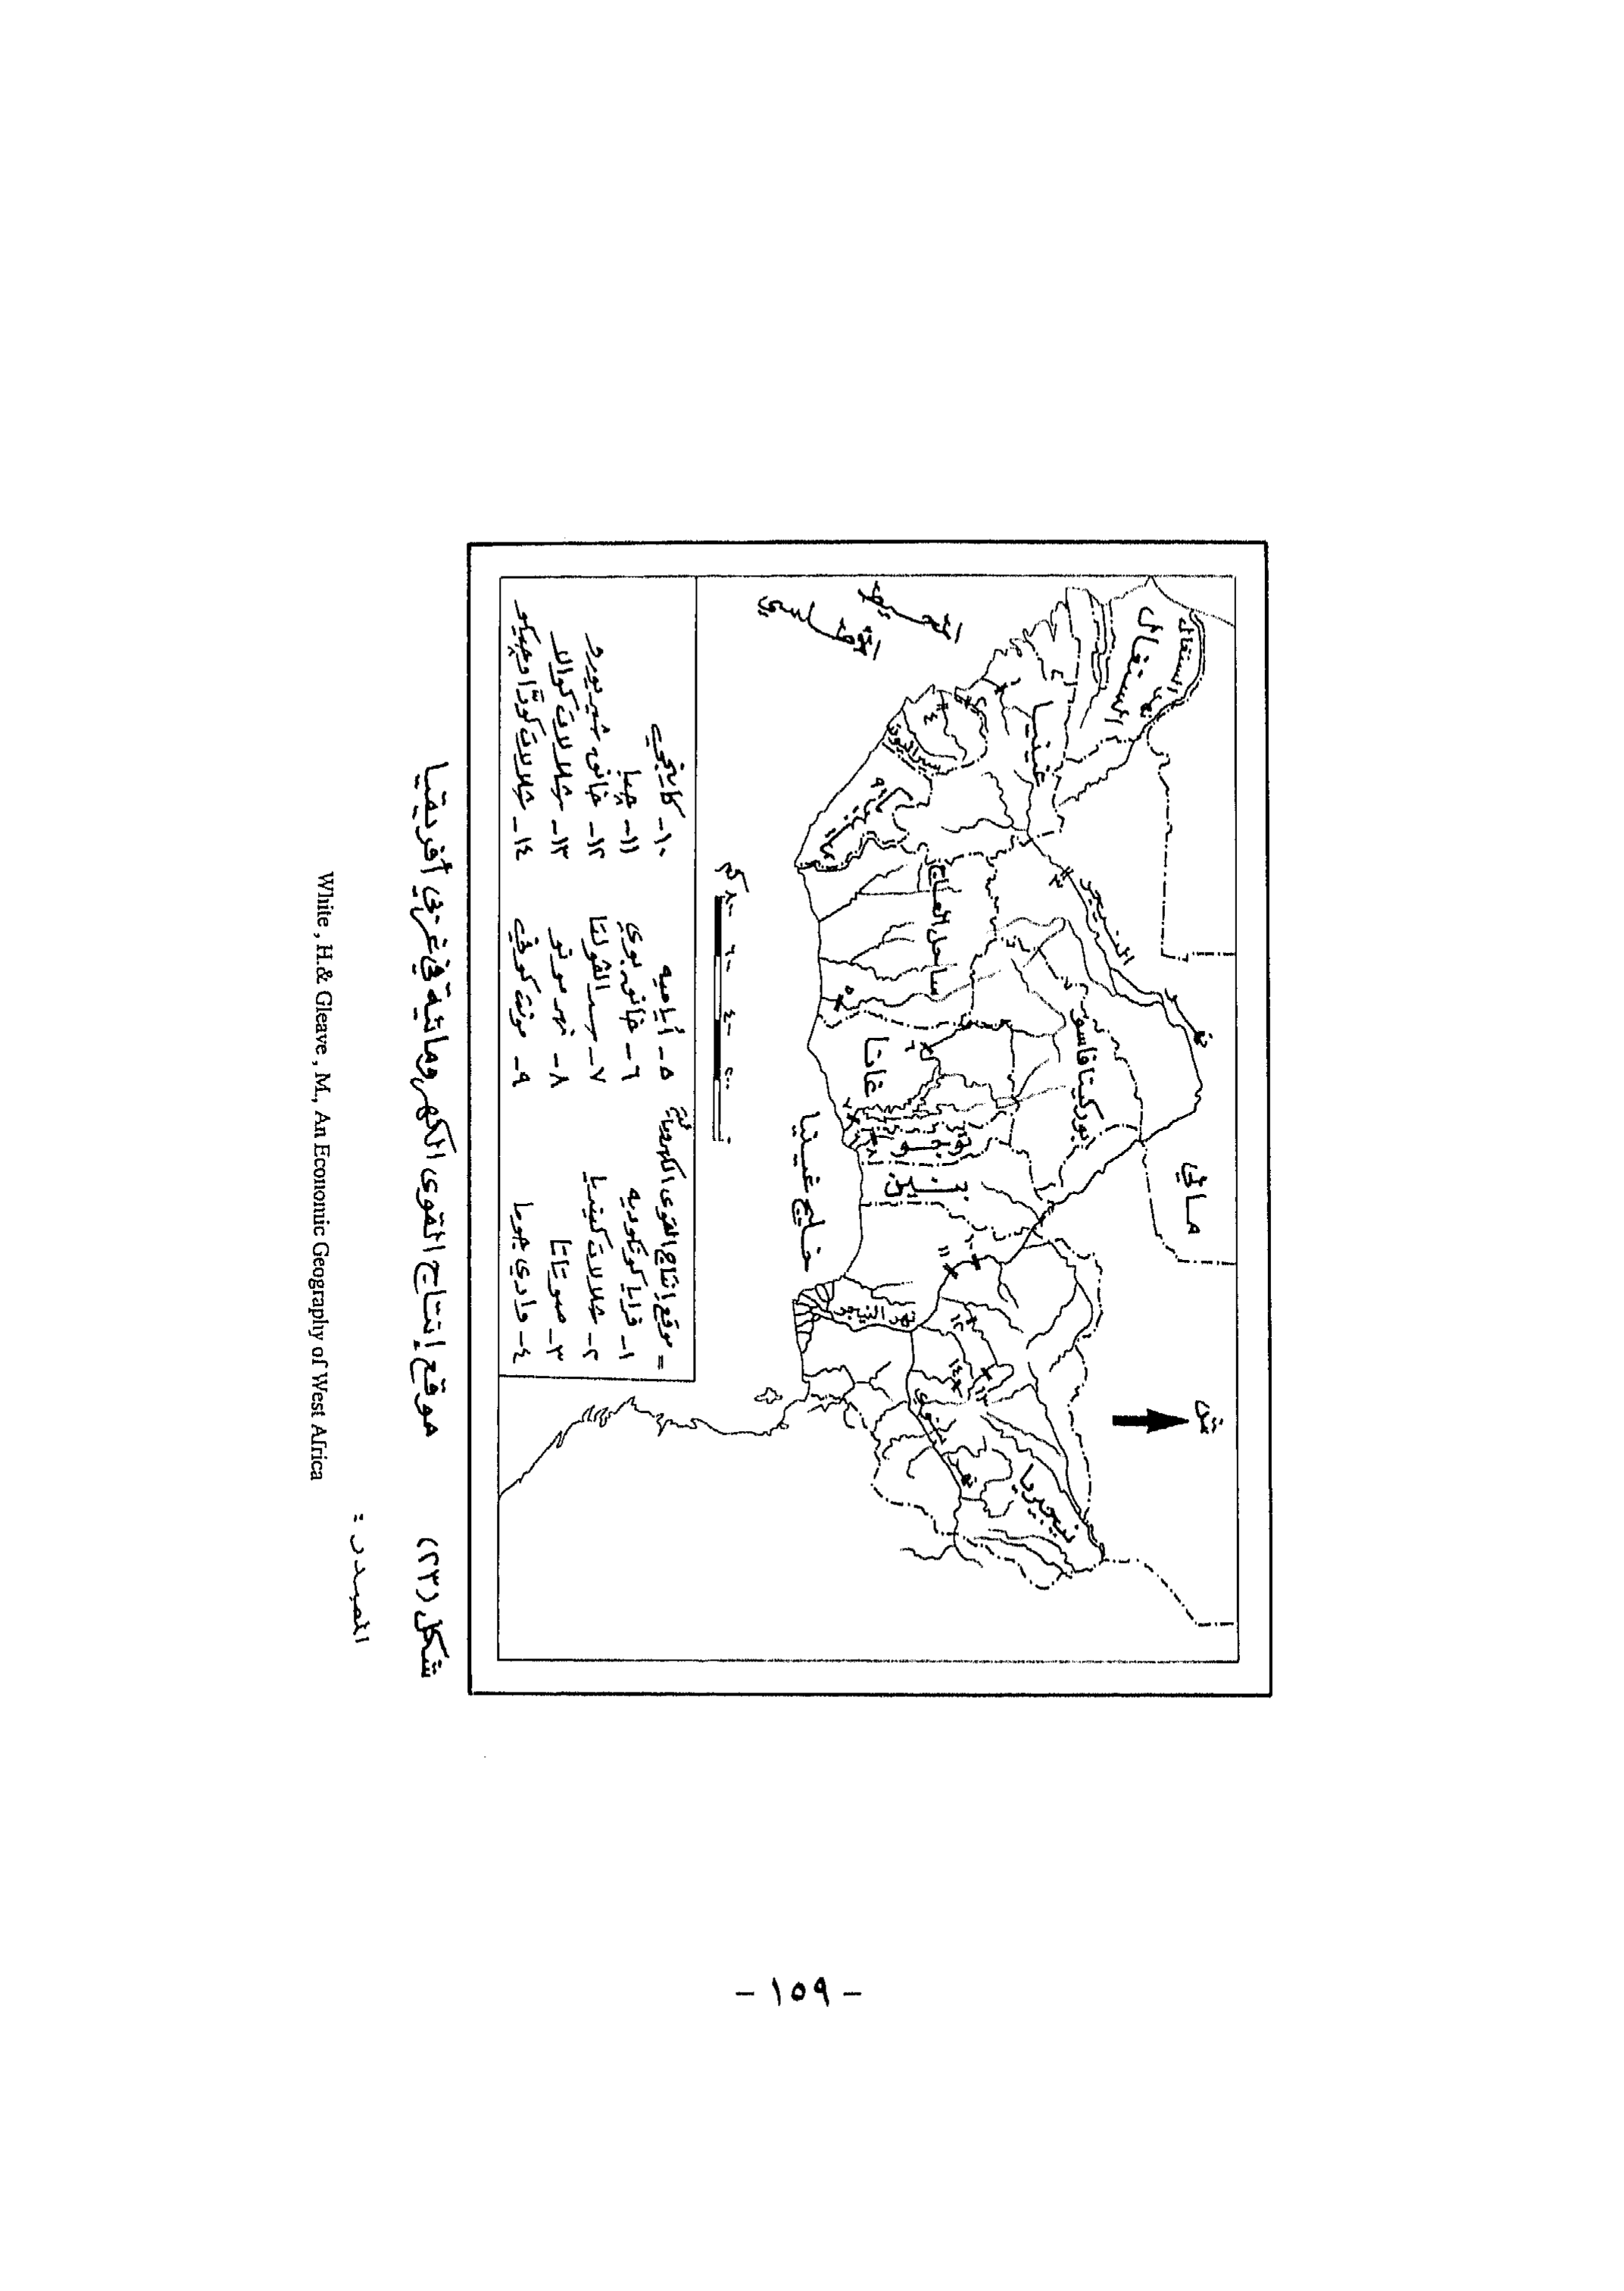 ش
السنغال
نهر السنغال
مالي
غينيا
النيجر
بوركينا فاسو
ساحل العاج
غانا
توجو
بنين
نيجيريا
نهر النيجر
خليج غينيا
المحيط
الأطلسي
كم ٨٠٠ ٦٠٠ ٤٠٠ ٢٠٠ ٠
= موقع إنتاج القوى الكهرمائية
١- فرايا كوناكوديه
٢- شلالات كينيما
٣- سوتاتا
٤- وادي جوما
٥- أياميه
٦- خانق بوي
٧- سد الڤولتا
٨- نهر مونو
٩- مونت كوفي
١٠- كاينجي
١١- جبا
١٢- خانق شيرورو
١٣- شلالات كوالا
١٤- شلالات كورّا وجيكو
شكل (٢٣) موقع إنتاج القوى الكهرومائية في غربي أفريقيا
المصدر :
White , H.& Gleave , M., An Economic Geography of West Africa
- ١٥٩ -